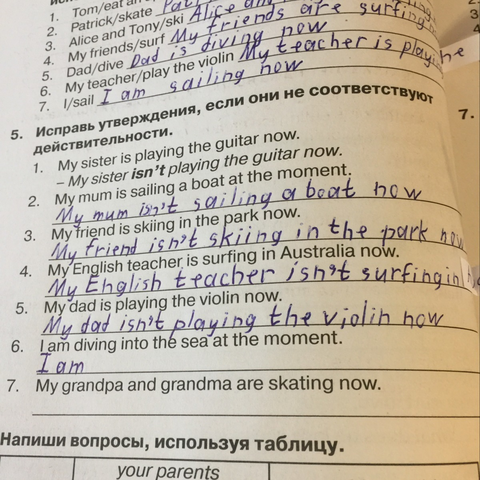 1. Tom/eat an
2. Patrick/skate
3. Alice and Tony/ski Alice
4. My friends/surf My friends are surfing
5. Dad/dive Dad is diving now
6. My teacher/play the violin My teacher is playi
7. I/sail I am sailing now
5. Исправь утверждения, если они не соответствуют
действительности.
7.
1. My sister is playing the guitar now.
– My sister isn't playing the guitar now.
2. My mum is sailing a boat at the moment.
My mum isn't sailing a boat now
3. My friend is skiing in the park now.
My friend isn't skiing in the park now
4. My English teacher is surfing in Australia now.
My English teacher isn't surfing in
5. My dad is playing the violin now.
My dad isn't playing the violin now
6. I am diving into the sea at the moment.
I am
7. My grandpa and grandma are skating now.
Напиши вопросы, используя таблицу.
your parents